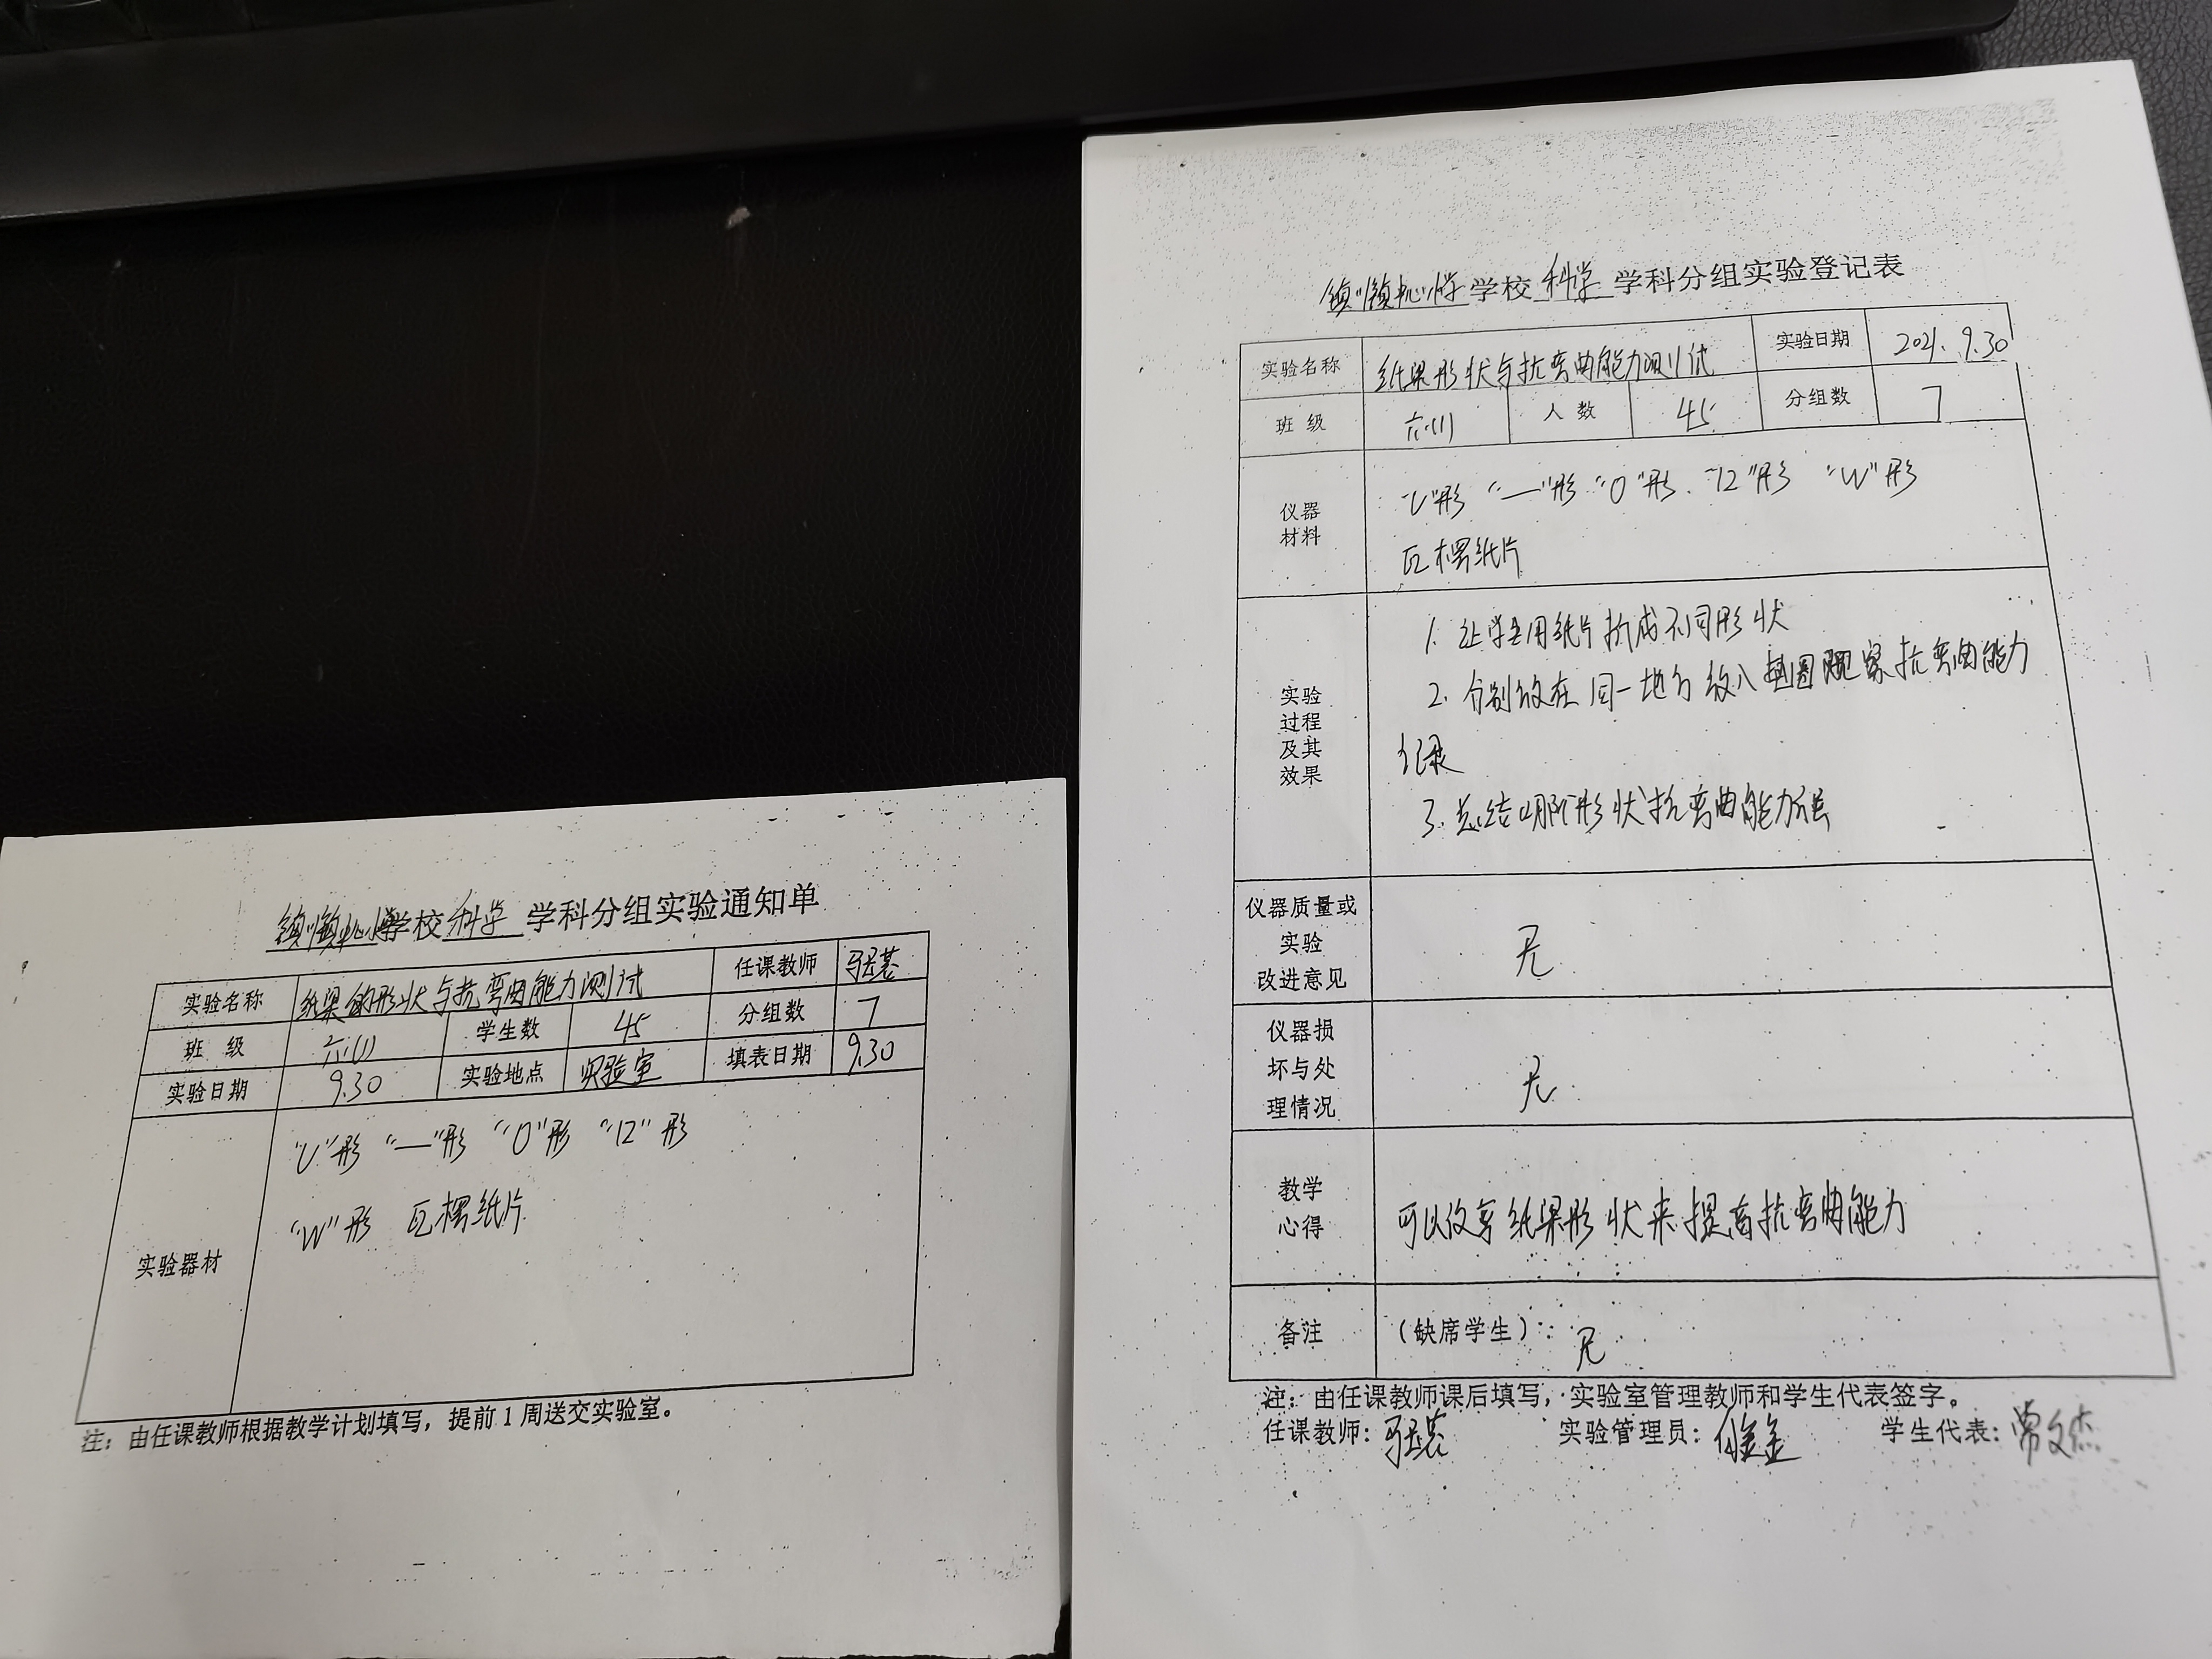 学校 科学 学科分组实验通知单
实验名称 纸梁的形状与抗弯曲能力测试 任课教师
班 级 六(1) 学生数 45 分组数 7
实验日期 9.30 实验地点 实验室 填表日期 9.30
实验器材
"U"形 "一"形 "O"形 "12"形
"W"形 瓦楞纸片
注：由任课教师根据教学计划填写，提前1周送交实验室。
学校 科学 学科分组实验登记表
实验名称 纸梁形状与抗弯曲能力测试 实验日期 2021.9.30
班 级 六(1) 人 数 45 分组数 7
仪器
材料
"U"形 "一"形 "O"形、"12"形 "W"形
瓦楞纸片
实验
过程
及其
效果
1. 让学生用纸片折成不同形状
2. 分别放在同一地方 放入 观察抗弯曲能力
记录
3. 总结 形状抗弯曲能力
仪器质量或
实验
改进意见
无
仪器损
坏与处
理情况
无
教学
心得
可以改变纸梁形状来提高抗弯曲能力
备注 （缺席学生）：无
注：由任课教师课后填写，实验室管理教师和学生代表签字。
任课教师： 实验管理员： 学生代表：